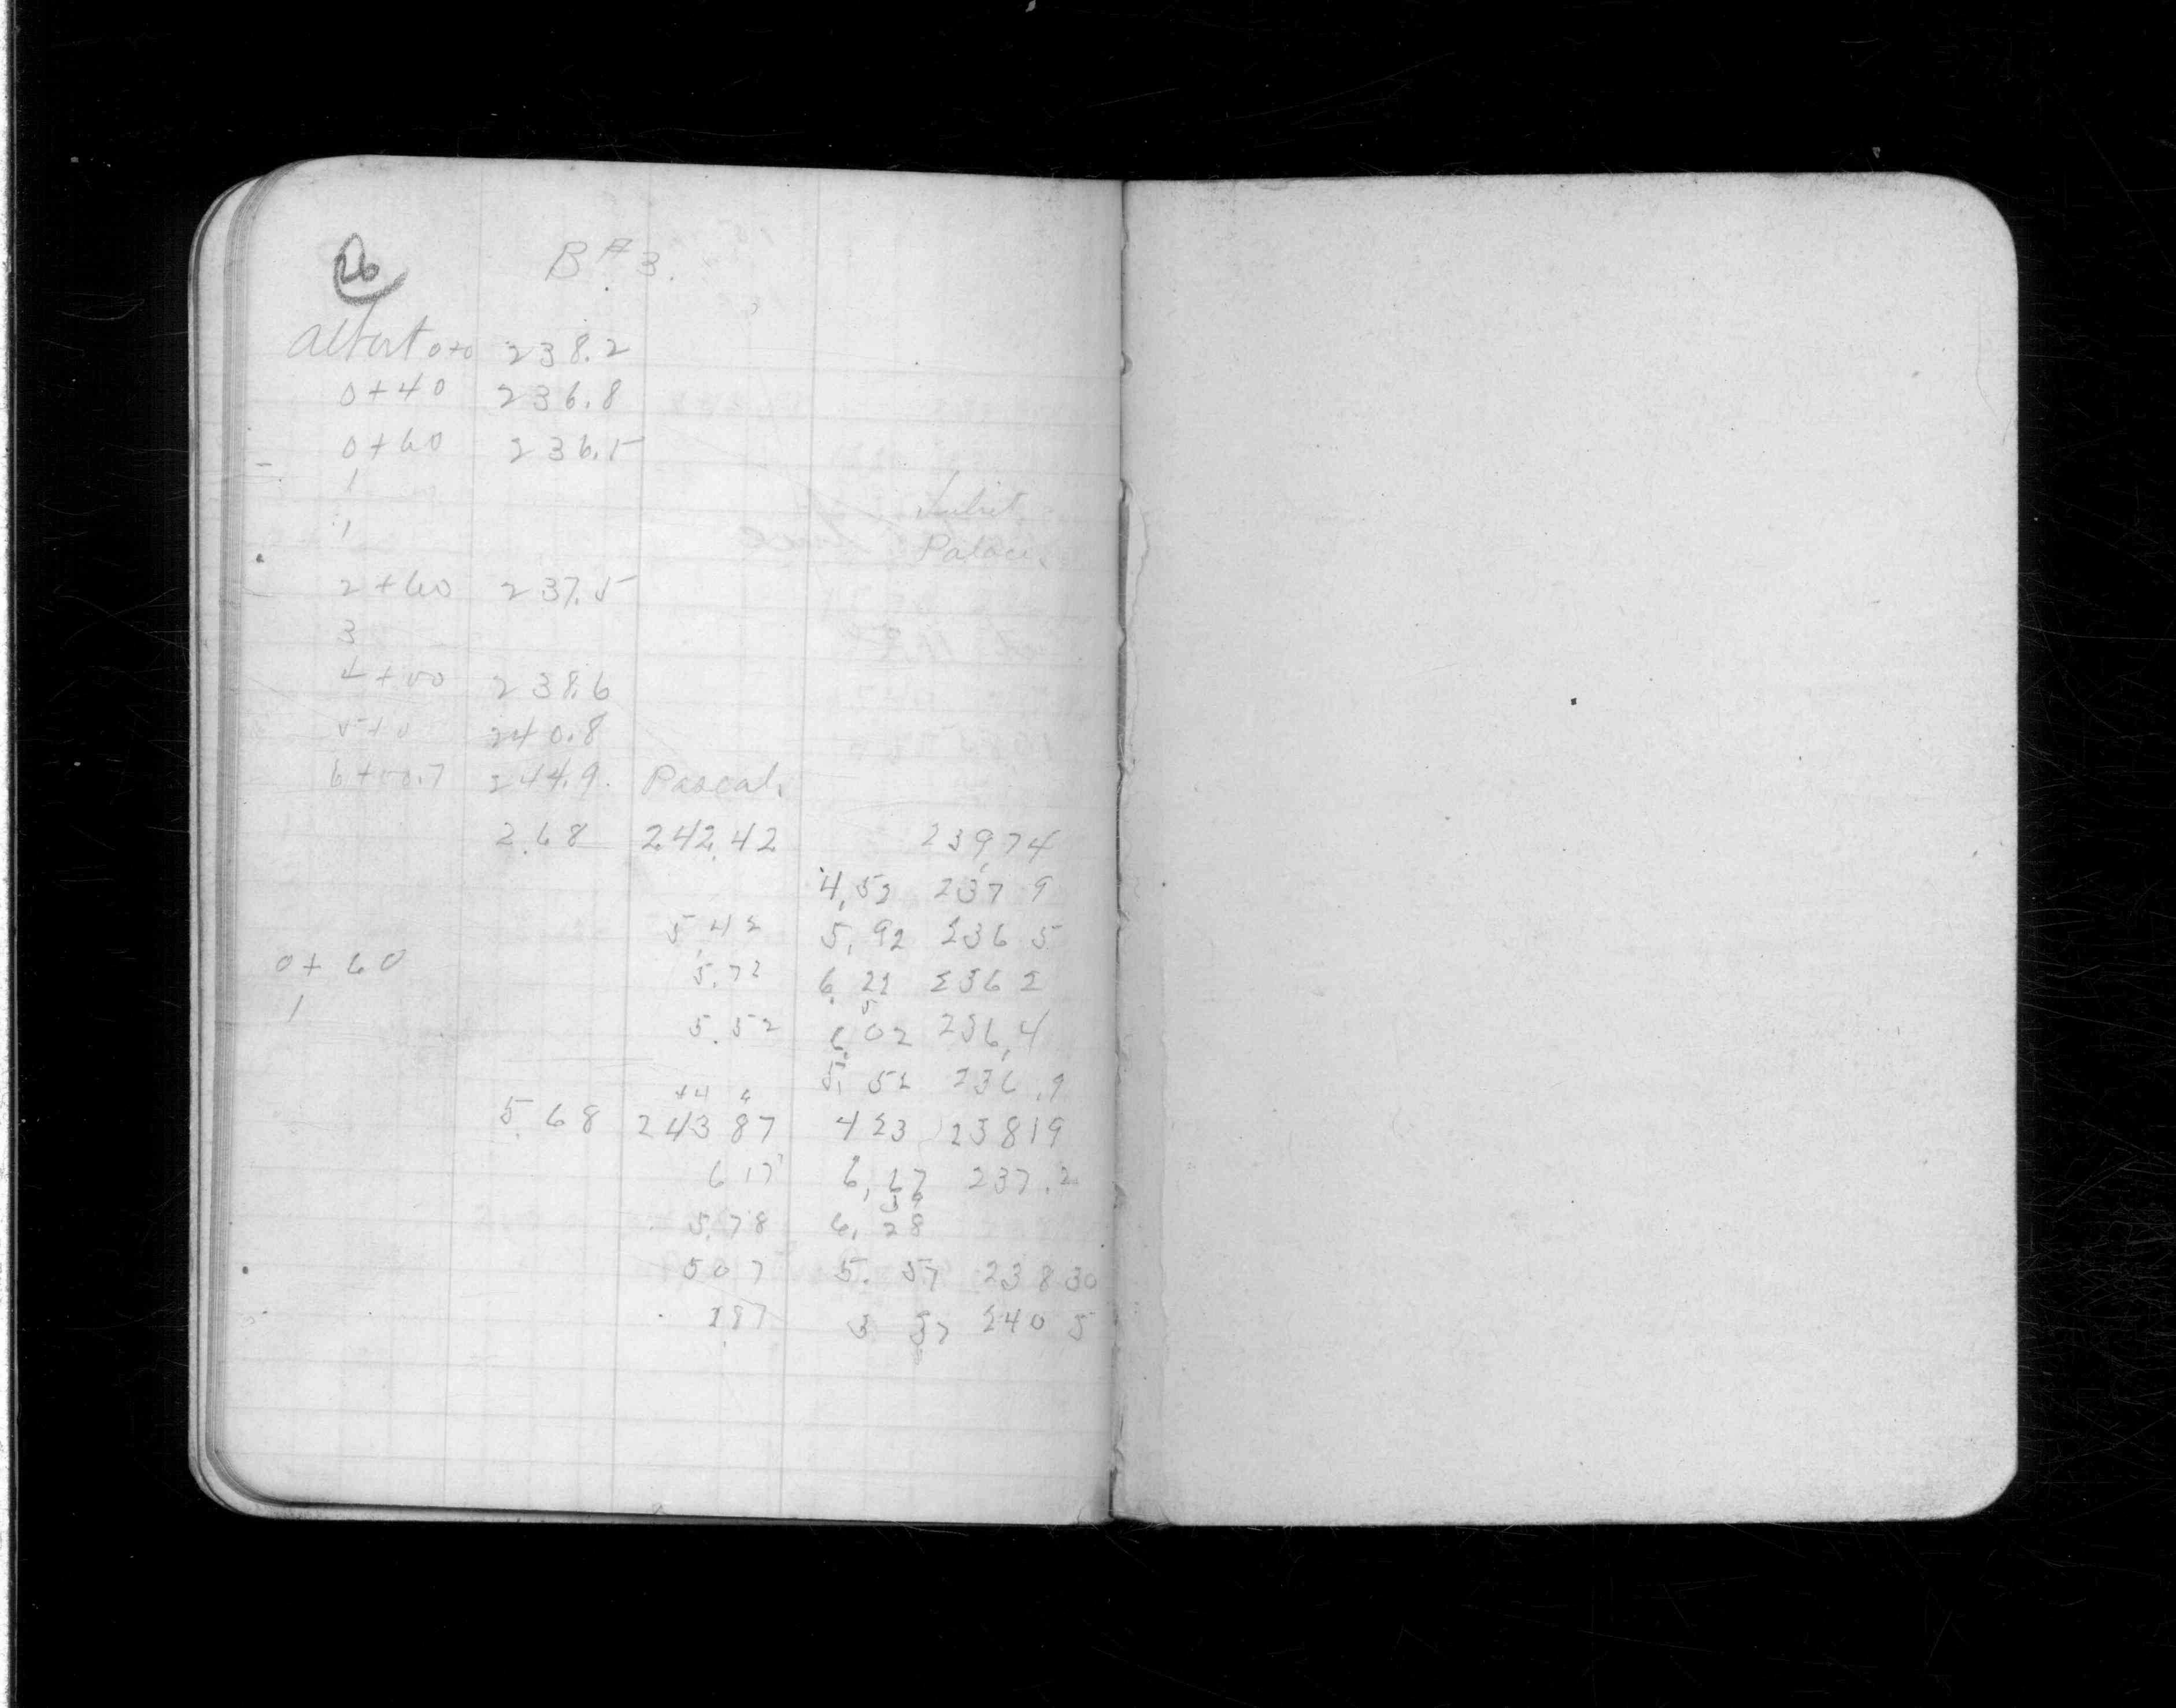 26 B#3.
Albert 0+0 238.2
0+40 236.8
0+60 236.5
1
1
Palace.
2+60 237.5
3
4+00 238.6
5+0 240.8
6+00.7 244.9. Pascal.
2.68 242.42 239,74
4,52 237 9
5,42 5,92 236 5
0+60 5.72 6,22 236 2
1 5.52 6,02 236,4
5, 52 236.9
5.68 243 87 423 23819
6 17 6,67 237.2
5.78 6,28
507 5.57 23830
287 3 37 240 5